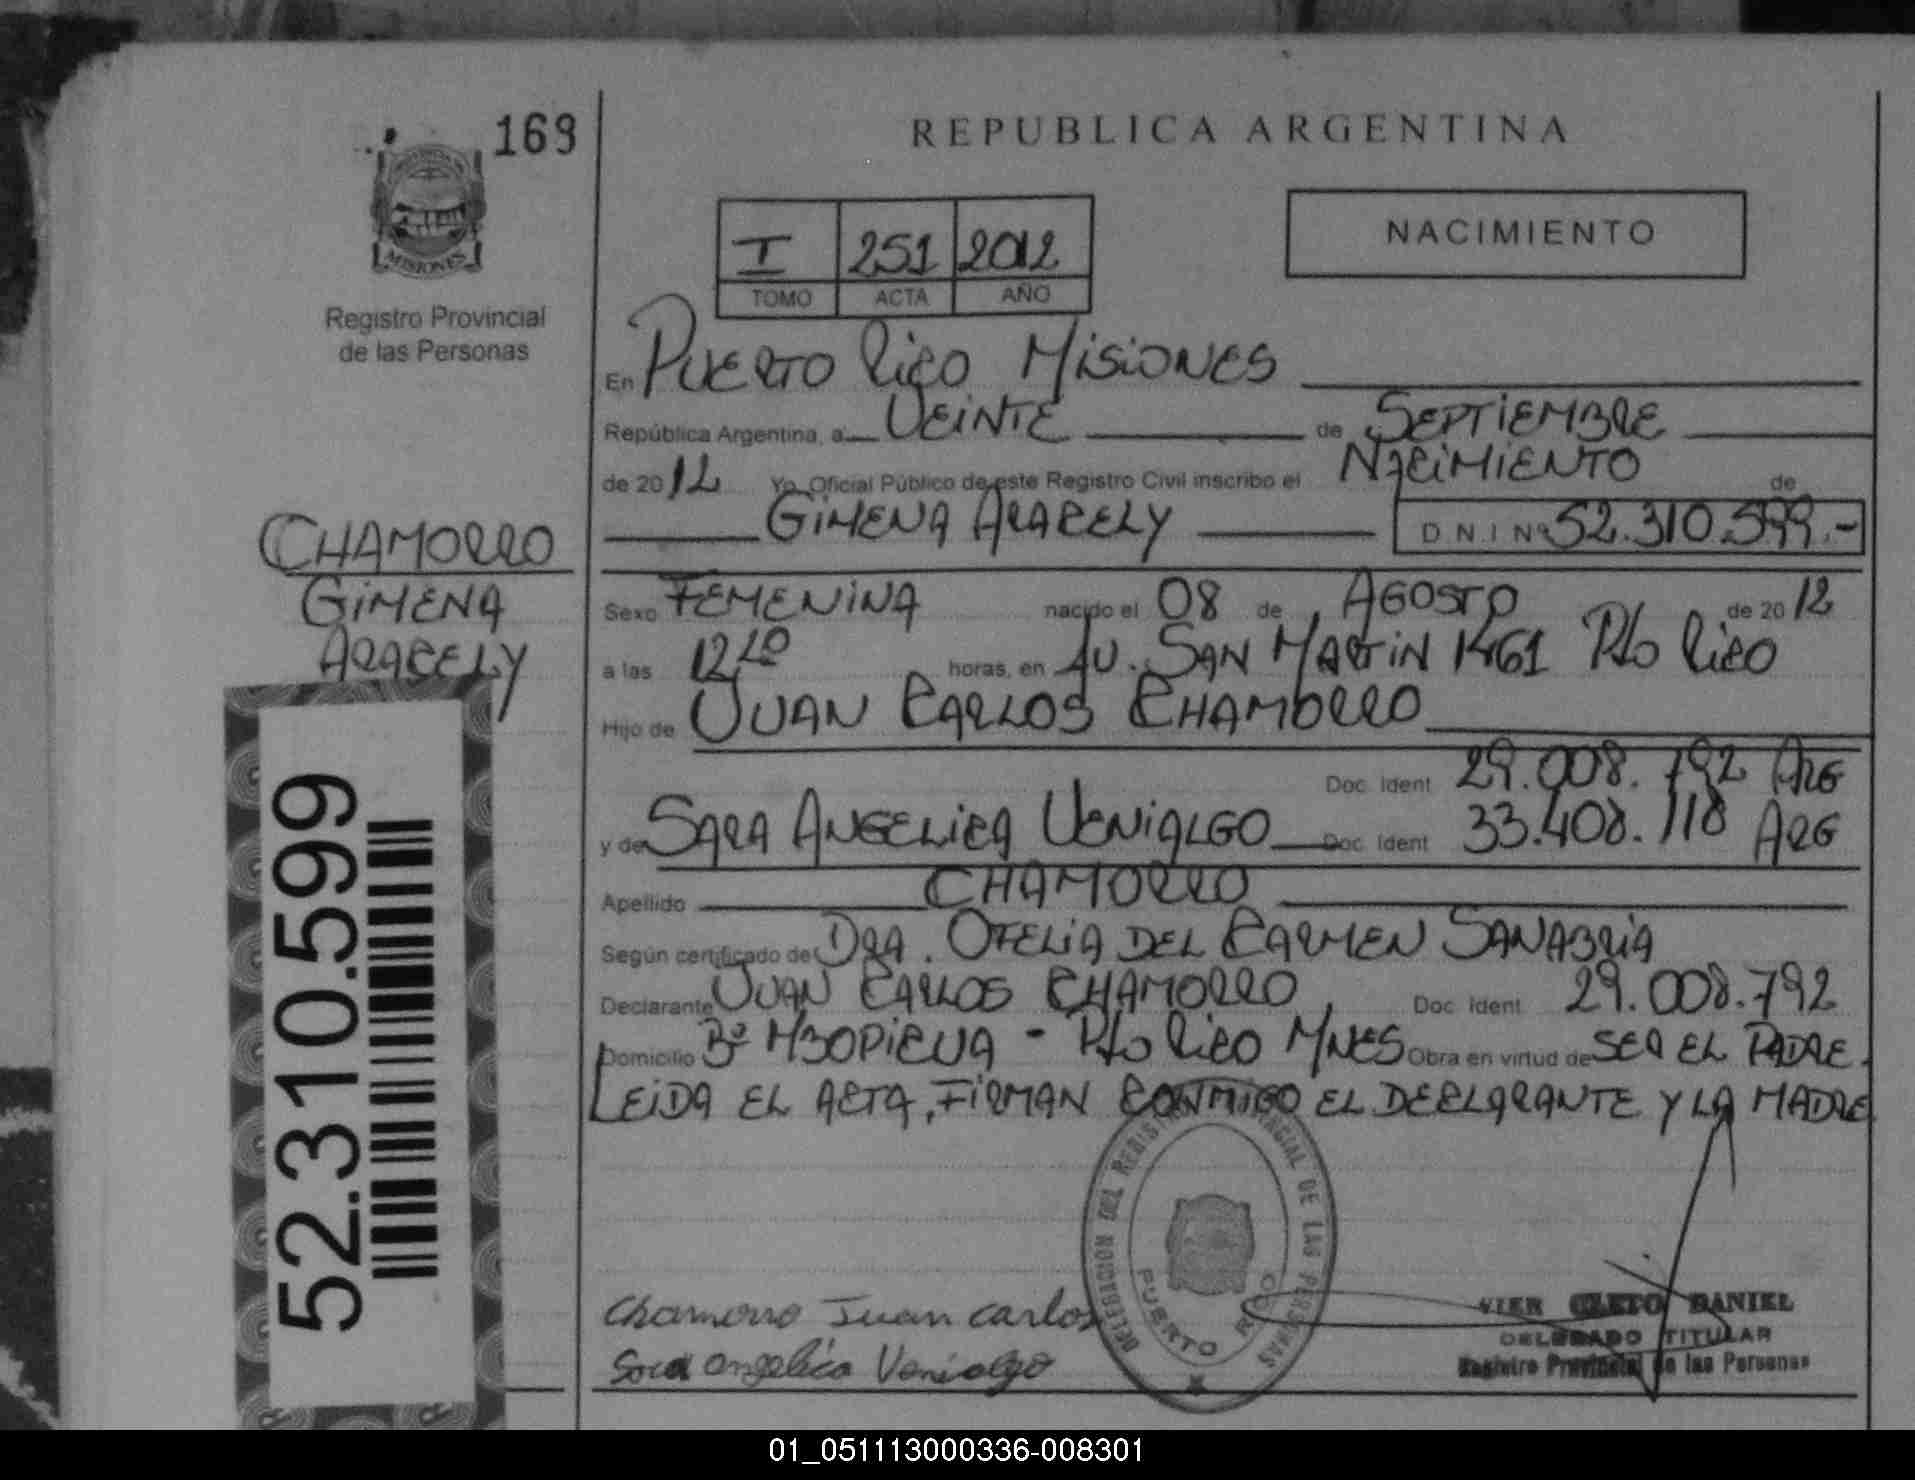 169
REPUBLICA ARGENTINA
MISIONES
Registro Provincial
de las Personas
I 251 2012
TOMO ACTA AÑO
NACIMIENTO
En PUERTO RICO MISIONES
República Argentina, a VEINTE de SEPTIEMBRE
de 2012 Yo, Oficial Público de este Registro Civil inscribo el NACIMIENTO de
GIMENA ARACELY D.N.I Nº 52.310.599.-
CHAMORRO
GIMENA
ARACELY
Sexo FEMENINA nacido el 08 de AGOSTO de 2012
a las horas, en AV. SAN MARTIN 1461 Pto RICO
Hijo de JUAN CARLOS CHAMORRO
Doc. Ident 29.008.792 ARG
y de SARA ANGELICA VENIALGO Doc. Ident 33.408.118 ARG
Apellido CHAMORRO
Según certificado de DRA. OFELIA DEL CARMEN SANABRIA
Declarante JUAN CARLOS CHAMORRO, Doc. Ident 29.008.792
Domicilio Bº - Pto RICO MNES Obra en virtud de SER EL PADRE.
LEIDA EL ACTA, FIRMAN CONMIGO EL DECLARANTE Y LA MADRE
52.310.599
DELEGACION DEL REGISTRO PROVINCIAL DE LAS PERSONAS
PUERTO RICO
Chamorro Juan carlos
Sara angelica Venialgo
VIER CLETO DANIEL
DELEGADO TITULAR
Registro Provincial de las Personas
01_051113000336-008301